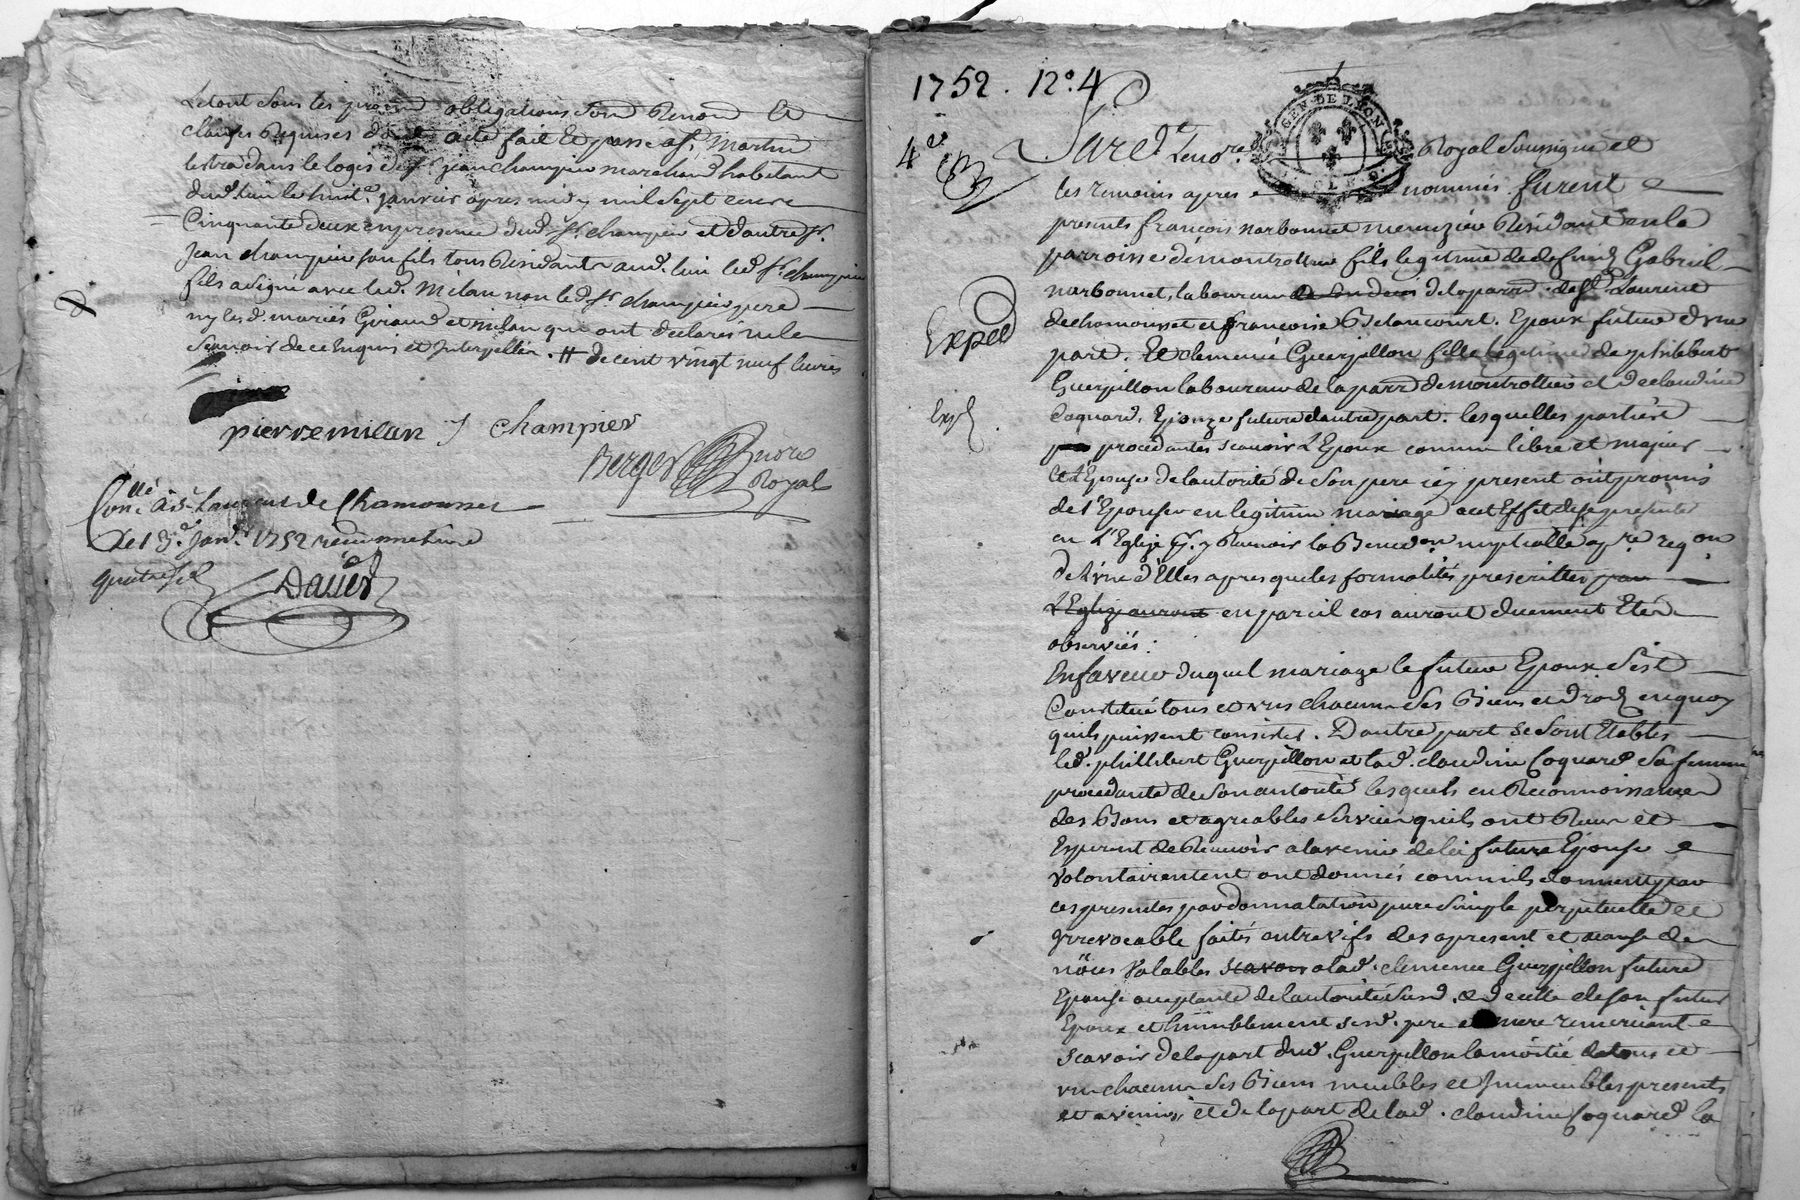 Le tout sous les obligations Soum Renon et
clauses Requises dont acte fait et passé a St Martin
lestra dans le logis de sr jean champier marchand habitant
dud. lieu le huite janvier apres midy mil sept cens
Cinquante deux en presence dud. sr champier et d'autre sr
jean champier son fils tous Residants aud. lieu led. sr champier
fils a signé avec led. Milan non led. sr champier pere
ny les d. mariés Giraud et milan qui ont declarés ne le
scavoir de ce Enquis et Interpellés. # de cent vingt neuf livres
pierre milan
champier
Berger nore
Royal
Conllé à St Laurens de Chamousset
Le 13e Janv. 1752 receu
quatre
Dauer
1752. n°. 4
4e
Expéd
Exp.
GEN. DE LYON
Pard. Le nore Royal Soussigné et
les temoins apres nommés furent
presents françois narbonnet menuzier Résidant en la
parroisse de montrottier fils legitime de defunt Gabriel
narbonnet, laboureur de la parr. de St Laurent
de chamousset et françoise Betancourt. Epoux futur d'vne
part. Et clemence Guerpillon fille legitime de philibert
Guerpillon laboureur de la parr de montrottier et de claudine
Coquard, Epouze future d'autre part. lesquelles parties
procedantes scavoir L'Epoux comme libre et majeur
et l'Epouse de l'autorité de son pere icy present ont promis
de s'Epouser en legitime mariage a cet Effet de se presenter
en L'Eglise pr. y Recevoir la Bened.on nuptialle a pre req.on
de l'vne d'Elles apres que les formalités prescrittes par
L'Eglize auront en pareil cas auront duement Eté
observées:
En faveur duquel mariage le futur Epoux s'est
Constitué tous et vns chacuns ses Biens et droits en quoy
quils puissent consister. D'autre part se sont Etablis
led. philibert Guerpillon et lad. claudine Coquard sa femme
procedante de son autorité lesquels en Reconnoissance
des Bons et agreables services quils ont Receu et
Esperent de Recevoir a lavenir de lad future Epouse
volontairement ont donnés comme ils donnent par
ces presentes par donnatation pure simple perpetuelle et
yrrevocable faite entre vifs des a present et a cause de
nôces Valables scavoir a lad. clemence Guerpillon future
Epouse acceptante de l'autorité susd. et de celle de son futur
Epoux et humblement sesd. pere et mere remerciant
scavoir de la part dud. Guerpillon la moitié de tous et
vn chacuns ses Biens meubles et Immeubles presents
et avenir, et de la part de lad. claudine Coquard la